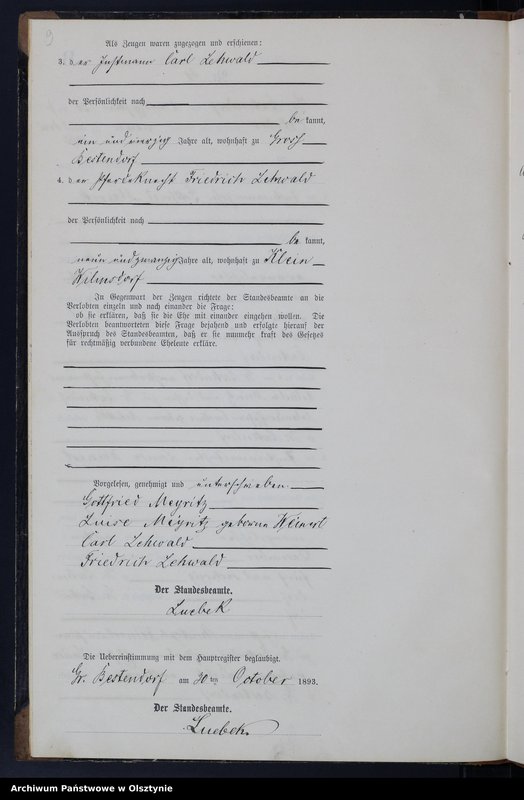 9
Als Zeugen waren zugezogen und erschienen:
3. der Instmann Carl Lehwald
der Persönlichkeit nach
be kannt,
ein und vierzig Jahre alt, wohnhaft zu Gross
Bestendorf
4. der Pferdeknecht Friedrich Lehwald
der Persönlichkeit nach
be kannt,
neun und zwanzig Jahre alt, wohnhaft zu Klein
Wilmsdorf
In Gegenwart der Zeugen richtete der Standesbeamte an die
Verlobten einzeln und nach einander die Frage:
ob sie erklären, daß sie die Ehe mit einander eingehen wollen. Die
Verlobten beantworteten diese Frage bejahend und erfolgte hierauf der
Ausspruch des Standesbeamten, daß er sie nunmehr kraft des Gesetzes
für rechtmäßig verbundene Eheleute erkläre.
Vorgelesen, genehmigt und unterschrieben.
Gottfried Meyritz
Luise Meyritz geborne Weinert
Carl Lehwald
Friedrich Lehwald
Der Standesbeamte.
Luebek
Die Uebereinstimmung mit dem Hauptregister beglaubigt.
Gr. Bestendorf am 30 ten October 1893.
Der Standesbeamte.
Luebek.
Archiwum Państwowe w Olsztynie